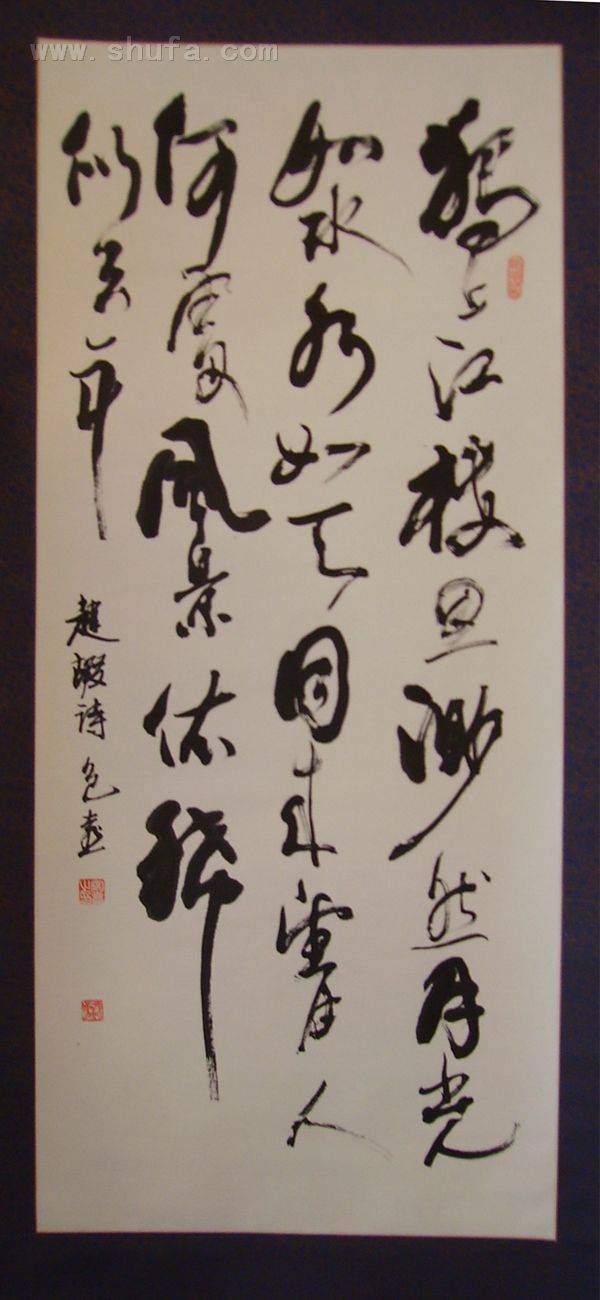 www.shufa.com
獨上江楼思渺然月光
如水水如天同来望月人
何處風景依稀
似去年
趙嘏詩